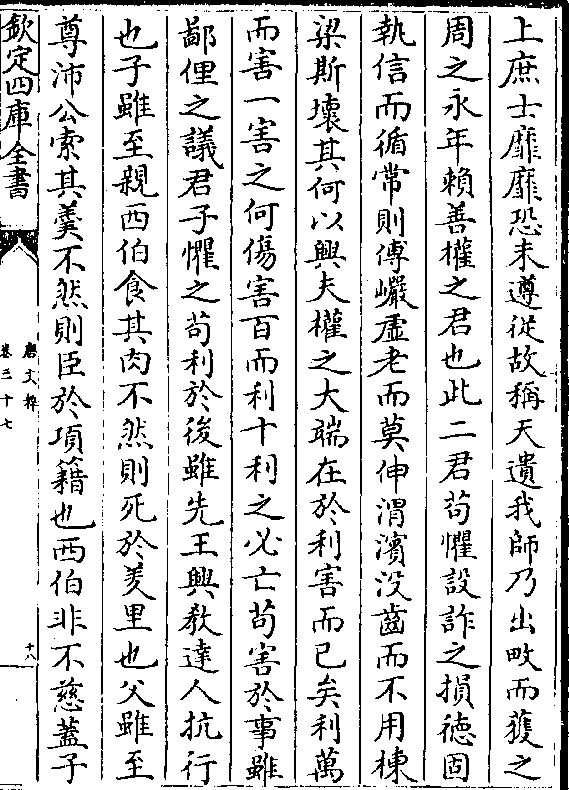 上庶士靡靡恐未遵從故稱天遺我師乃出畋而獲之
周之永年賴善權之君也此二君苟懼設詐之損德固
執信而循常則傅巖虛老而莫伸渭濱没齒而不用棟
梁斯壞其何以興夫權之大端在於利害而已矣利萬
而害一害之何傷害百而利十利之必亡苟害於事雖
鄙俚之議君子懼之苟利於後雖先王興教達人抗行
也子雖至親西伯食其肉不然則死於羑里也父雖至
尊沛公索其羹不然則臣於項籍也西伯非不慈蓋子
欽定四庫全書
唐文粹
卷三十七
十八